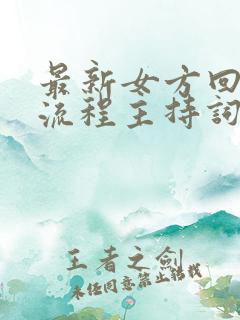 最新女方回
流程主持词
王者之剑
未经同意禁止转载